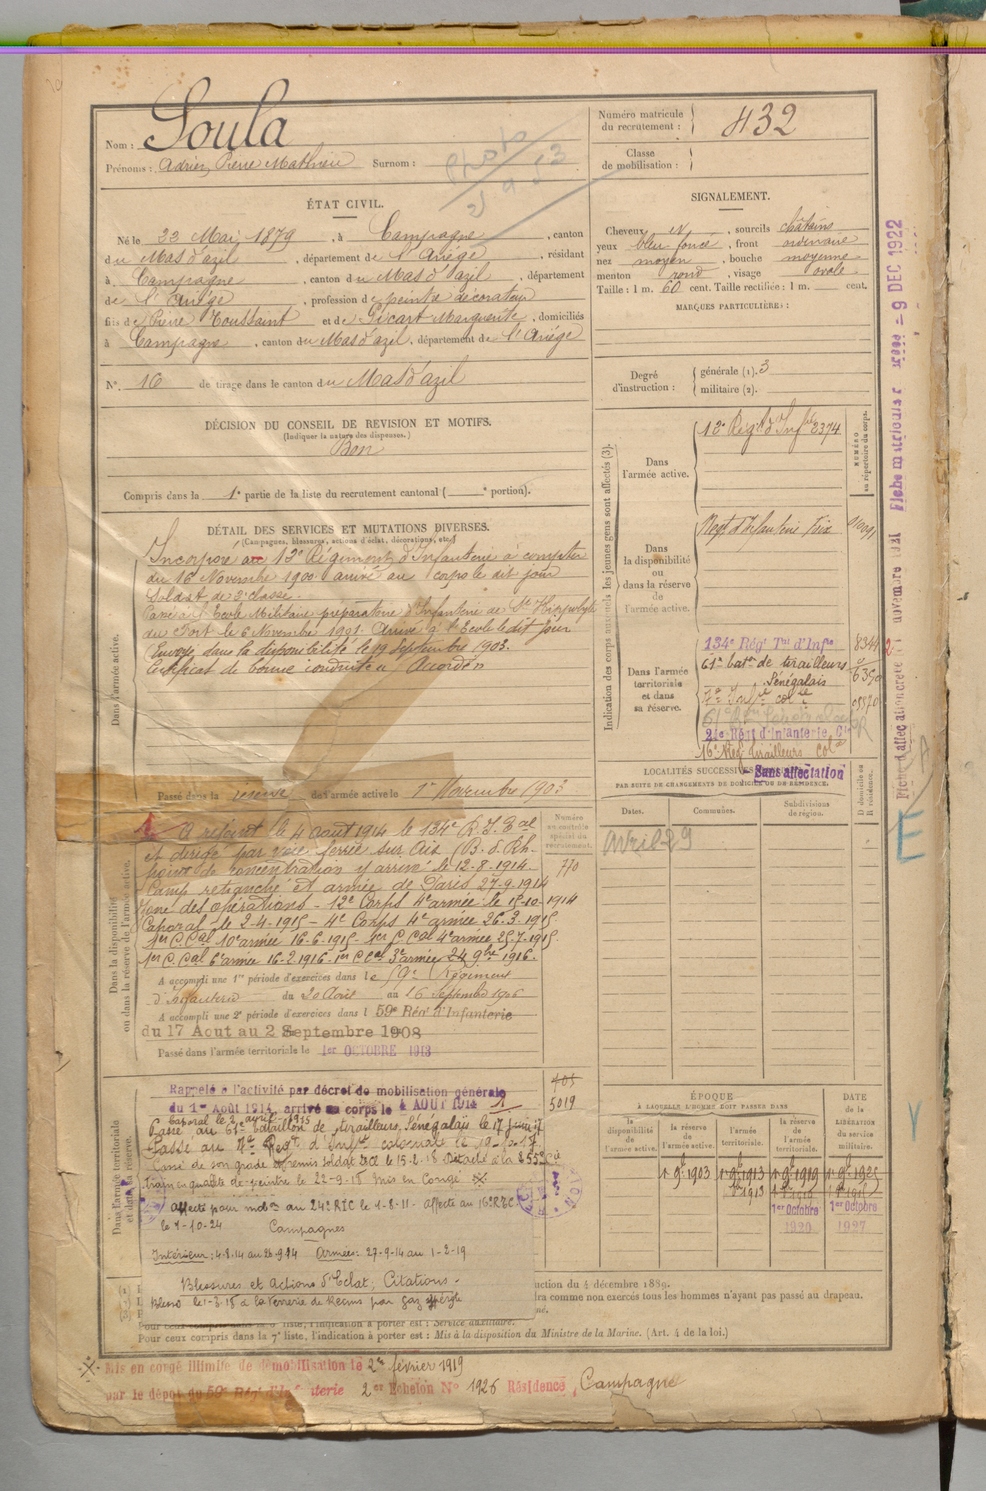 Nom : Soula
Prénoms : Adrien, Pierre Mathieu Surnom :
Numéro matricule du recrutement : 432
Classe de mobilisation :
Photo
ÉTAT CIVIL.
Né le 22 Mai 1879, à Campagne, canton
du Mas d'azil, département de l'Ariége, résidant
à Campagne, canton du Mas d'azil, département
de l'Ariége, profession de peintre décorateur
fils de Pierre Toussaint et de Sicart Marguerite, domiciliés
à Campagne, canton du Mas d'azil, département de l'Ariége
N° 16 de tirage dans le canton du Mas d'azil
SIGNALEMENT.
Cheveux et, sourcils châtains
yeux bleu foncé, front ordinaire
nez moyen, bouche moyenne
menton rond, visage ovale
Taille : 1 m. 60 cent. Taille rectifiée : 1 m. cent.
MARQUES PARTICULIÈRES :
Degré d'instruction : générale (1). 3
militaire (2).
DÉCISION DU CONSEIL DE REVISION ET MOTIFS.
(Indiquer la nature des dispenses.)
Bon
Compris dans la 1e partie de la liste du recrutement cantonal ( e portion).
DÉTAIL DES SERVICES ET MUTATIONS DIVERSES.
(Campagnes, blessures, actions d'éclat, décorations, etc.)
Dans l'armée active.
Incorporé au 12e Régiment d'Infanterie à compter
du 16 Novembre 1900. arrivé au corps le dit jour
Soldat de 2e classe.
Passé à l'Ecole Militaire préparatoire d'Infanterie de St Hippolyte
du Fort le 6 Novembre 1901. Arrivé à l'Ecole le dit jour
Envoyé dans la disponibilité le 19 Septembre 1903.
Certificat de bonne conduite "Accordé"
Passé dans la réserve de l'armée active le 1er Novembre 1903
Dans la disponibilité ou dans la réserve de l'armée active.
A rejoint le 4 aout 1914 le 134e R.I. Tal
et dirigé par voie ferrée sur
point de concentration y arrivé le 12-8-1914.
Camp retranché et armée de Paris 27-9-1914
Zone des opérations - 12e Corps 4e armée le 15-10-1914
Caporal le 2-4-1915 - 4e Corps 4e armée 26-3-1915
1er C. Cal 10e armée 16-6-1915 - 1er C. Cal 4e armée 25-7-1915
1er C. Cal 6e armée 16-2-1916. 1er C. Cal 3e armée 24 9bre 1916.
A accompli une 1re période d'exercices dans le 59e Régiment
d'Infanterie du 20 Aout au 16 Septembre 1906
A accompli une 2e période d'exercices dans l 59e Régt d'Infanterie
du 17 Aout au 2 Septembre 1908
Passé dans l'armée territoriale le 1er OCTOBRE 1913
Numéro au contrôle spécial du recrutement.
770
405
5019
Dans l'armée territoriale et dans sa réserve.
Rappelé à l'activité par décret de mobilisation générale
du 1er Août 1914, arrivé au corps le 4 AOUT 1914
Caporal le 2 avril 1915
Passé au 61e bataillon de tirailleurs Sénégalais le 17 juin 17
Passé au 7e Régt d'Inftie coloniale le
Cassé de son grade et remis soldat 2e Cl le 15-2-18 Détaché à la
train en qualité de peintre le 22-9-18 Mis en Congé
affecté pour mobon au 24e RIC le - affecté au 16e RTC
le 1-10-24 Campagnes
Intérieur : 4-8-14 au 26-9-14 Armées : 27-9-14 au 1-2-19
Blessures et Actions d'Eclat, Citations -
Blessé le 1-3-18 à la Verrerie de Reims par gaz ypérite
Indication des corps auxquels les jeunes gens sont affectés (3).
NUMÉRO au répertoire du corps.
Dans l'armée active.
12e Régt d'Infrie 2374
Dans la disponibilité ou dans la réserve de l'armée active.
Regt d'Infanterie Foix
Dans l'armée territoriale et dans sa réserve.
134e Rég Tal d'Infie 8344
61e baton de tirailleurs 6390
Sénégalais
7e Inftie colle
21e Régt d'Infanterie Cle
16e Rég. Tirailleurs Col
Sans affectation
LOCALITÉS SUCCESSIVES
PAR SUITE DE CHANGEMENTS DE DOMICILE OU DE RÉSIDENCE.
Dates. Communes. Subdivisions de région. D domicile ou R résidence.
Avril 29
ÉPOQUE
À LAQUELLE L'HOMME DOIT PASSER DANS
la disponibilité de l'armée active. la réserve de l'armée active. l'armée territoriale. la réserve de l'armée territoriale.
DATE de la LIBÉRATION du service militaire.
1er 9bre 1903 1er 9bre 1913 1er 9bre 1919 1er 9bre 1925
1er Octobre 1920 1er Octobre 1927
uction du 4 décembre 1889.
dra comme non exercés tous les hommes n'ayant pas passé au drapeau.
Pour ceux compris dans le 6e liste, l'indication à porter est : Service auxiliaire.
Pour ceux compris dans la 7e liste, l'indication à porter est : Mis à la disposition du Ministre de la Marine. (Art. 4 de la loi.)
Mis en congé illimité de démobilisation le 2 février 1919
par le dépot du 59e Rég. d'Infanterie 2er Echelon N° 1926 Résidence, Campagne
9 DEC 1922